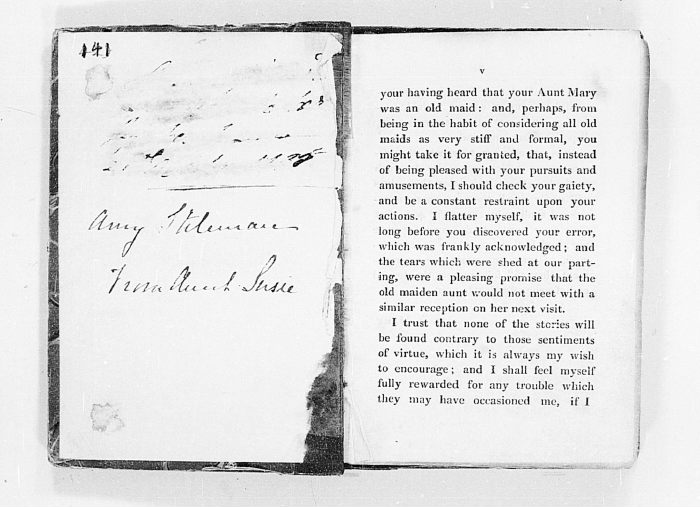 141
Amy
From Aunt Susie
v
your having heard that your Aunt Mary
was an old maid: and, perhaps, from
being in the habit of considering all old
maids as very stiff and formal, you
might take it for granted, that, instead
of being pleased with your pursuits and
amusements, I should check your gaiety,
and be a constant restraint upon your
actions. I flatter myself, it was not
long before you discovered your error,
which was frankly acknowledged; and
the tears which were shed at our part-
ing, were a pleasing promise that the
old maiden aunt would not meet with a
similar reception on her next visit.
I trust that none of the stories will
be found contrary to those sentiments
of virtue, which it is always my wish
to encourage; and I shall feel myself
fully rewarded for any trouble which
they may have occasioned me, if I